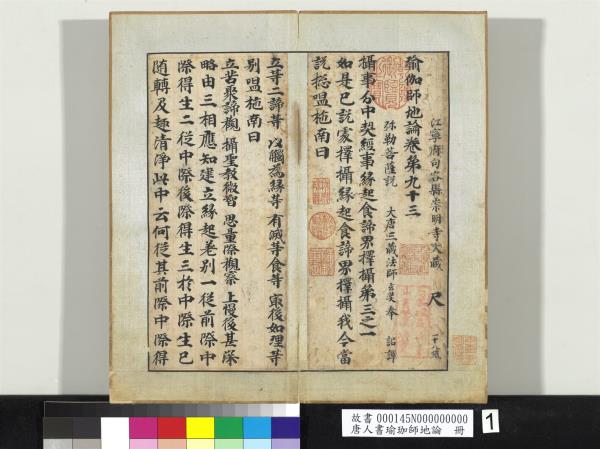 江寧府句容縣崇明寺大藏 尺 二十八紙
瑜伽師地論卷第九十三
彌勒菩薩說 大唐三藏法師玄奘奉 詔譯
攝事分中契經事緣起食諦界擇攝第三之一
如是已說處擇攝緣起食諦界擇攝我今當
說揔嗢柁南曰
立等二諦等 以觸為緣等 有滅等食等 㝡後如理等
別嗢柁南曰
立苦聚諦觀 攝聖教微智 思量際觀察 上慢後甚深
略由三相應知建立緣起差別一從前際中
際得生二從中際後際得生三於中際生已
隨轉及趣清淨此中云何從其前際中際得
故書 000145N000000000
唐人書瑜珈師地論 冊
1